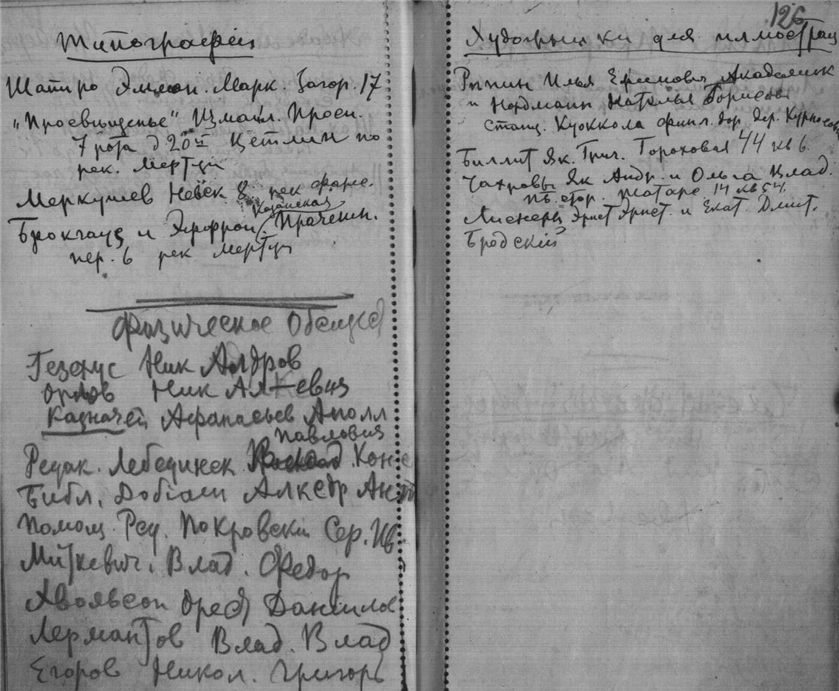 Типография
Шапиро Марк. Загор. 17
„Просвещенье" Измайл. Просп.
7 рота д 20 Цетлин по
рек. Мертца
Меркушев Невск 8 рек
Брокгауз и Эфрон Прачечн.
Казанская
пер. 6 рек Мертца
Физическое Общест
Гезехус Ник Алдров
Орлов Ник Алевиз
Казначей Афанасьев Аполл
Павлович
Редак. Лебединск Конс
Библ. Добиаш Алксдр Ант
Помощ. Ред. Покровск Сер. Ив.
Миткевич. Влад. Федор
Хвольсон Орест Данилов
Лермантов Влад. Влад
Егоров Никол. Григорь
126
Художники для иллюстрац
Репин Илья Ефимович Академик
и Нордманн Наталья Борисовн
станц. Куоккола финл. дор. дер.
Билит Як. Григ. Гороховая 44 кв 6.
Чахровы Як Андр. и Ольга Влад.
Пб. стор. 14 кв 54.
Липскеры Эрнст Эрнст. и Екат. Дмит.
Бродский